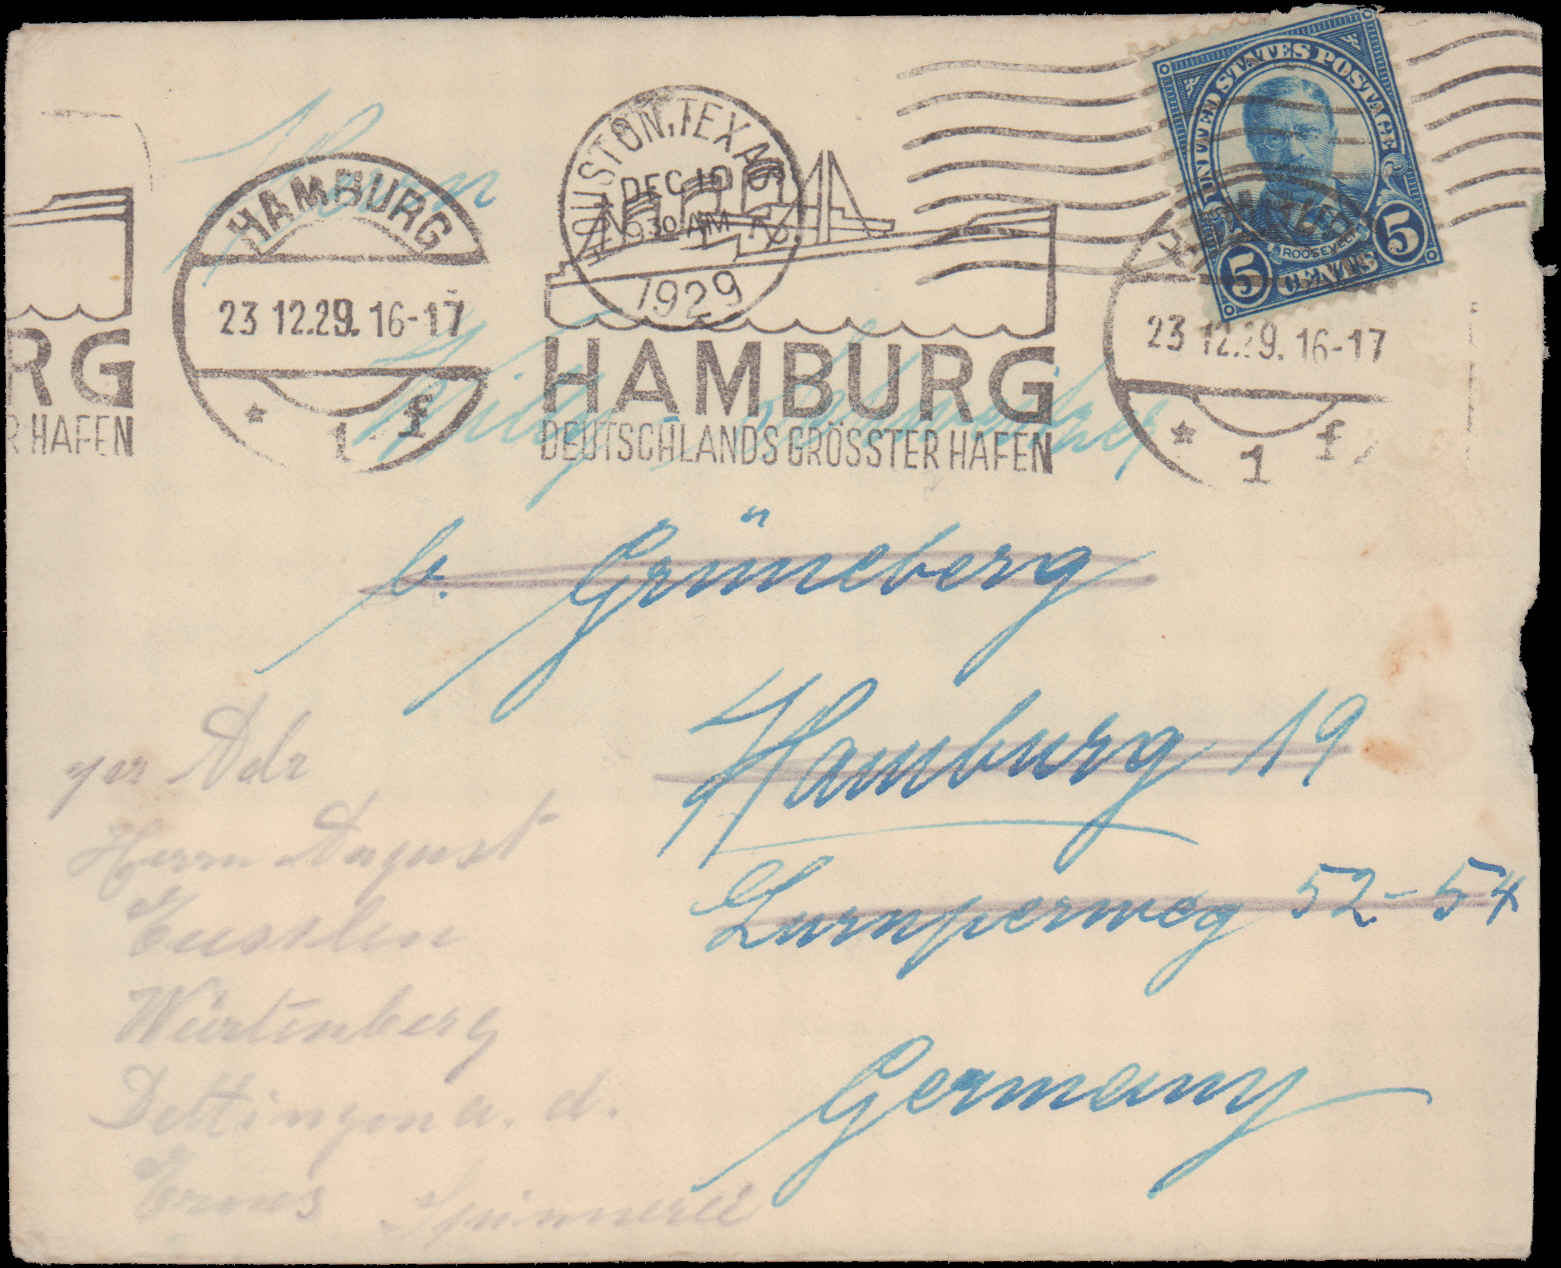 UNITED STATES POSTAGE
ROOSEVELT
5 CENTS 5
HOUSTON, TEXAS
DEC 10
630 AM
1929
HAMBURG
23 12.29. 16-17
* 1 f
RG
R HAFEN
HAMBURG
DEUTSCHLANDS GRÖSSTER HAFEN
23 12.29. 16-17
* 1 f
Herrn
b. Grüneberg
Hamburg 19
Lurnperweg 52-54
Germany
per Adr
Herrn August
Würtenberg
Dettingen a. d.
Erms Spinnerei